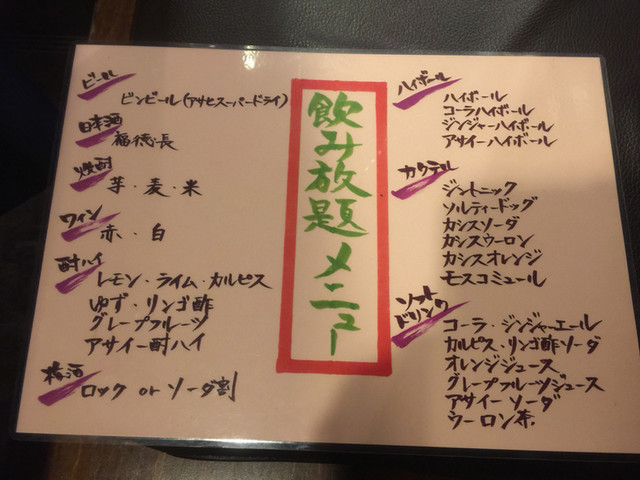 飲み放題メニュー
ビール
ビンビール(アサヒスーパードライ)
日本酒
福徳長
焼酎
芋・麦・米
ワイン
赤・白
酎ハイ
レモン・ライム・カルピス
ゆず・リンゴ酢
グレープフルーツ
アサイー酎ハイ
梅酒
ロック or ソーダ割
ハイボール
ハイボール
コーラハイボール
ジンジャーハイボール
アサイーハイボール
カクテル
ジントニック
ソルティードッグ
カシスソーダ
カシスウーロン
カシスオレンジ
モスコミュール
ソフト
ドリンク
コーラ・ジンジャエール
カルピス・リンゴ酢ソーダ
オレンジジュース
グレープフルーツジュース
アサイーソーダ
ウーロン茶